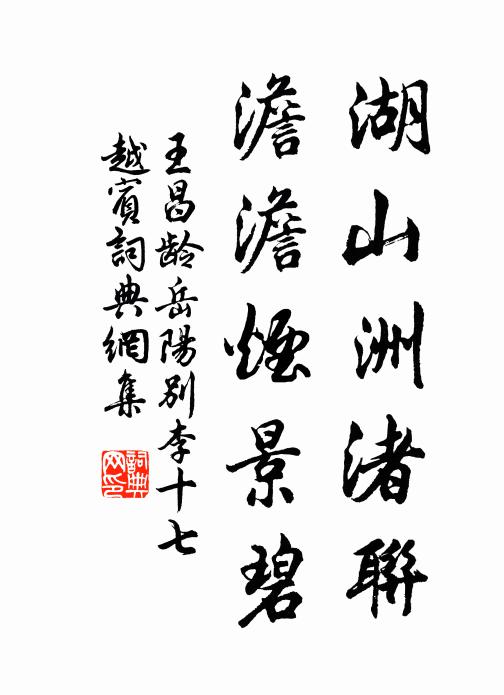 湖山洲渚聯
澹澹煙景碧
王昌齡岳陽別李十七
越賓詞典網集
詞典網印